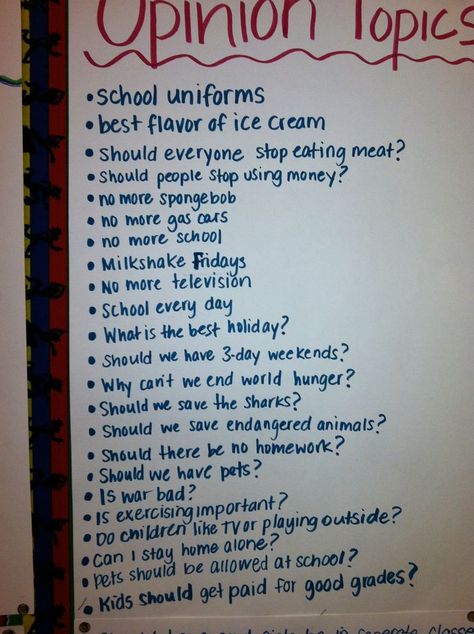 Opinion Topics
• school uniforms
• best flavor of ice cream
• Should everyone stop eating meat?
• Should people stop using money?
• no more spongebob
• no more gas cars
• no more school
• Milkshake Fridays
• No more television
• School every day
• What is the best holiday?
• Should we have 3-day weekends?
• Why can't we end world hunger?
• Should we save the sharks?
• Should we save endangered animals?
• Should there be no homework?
• Should we have pets?
• Is war bad?
• Is exercising important?
• Do children like TV or playing outside?
• Can I stay home alone?
• Pets should be allowed at school?
• Kids should get paid for good grades?